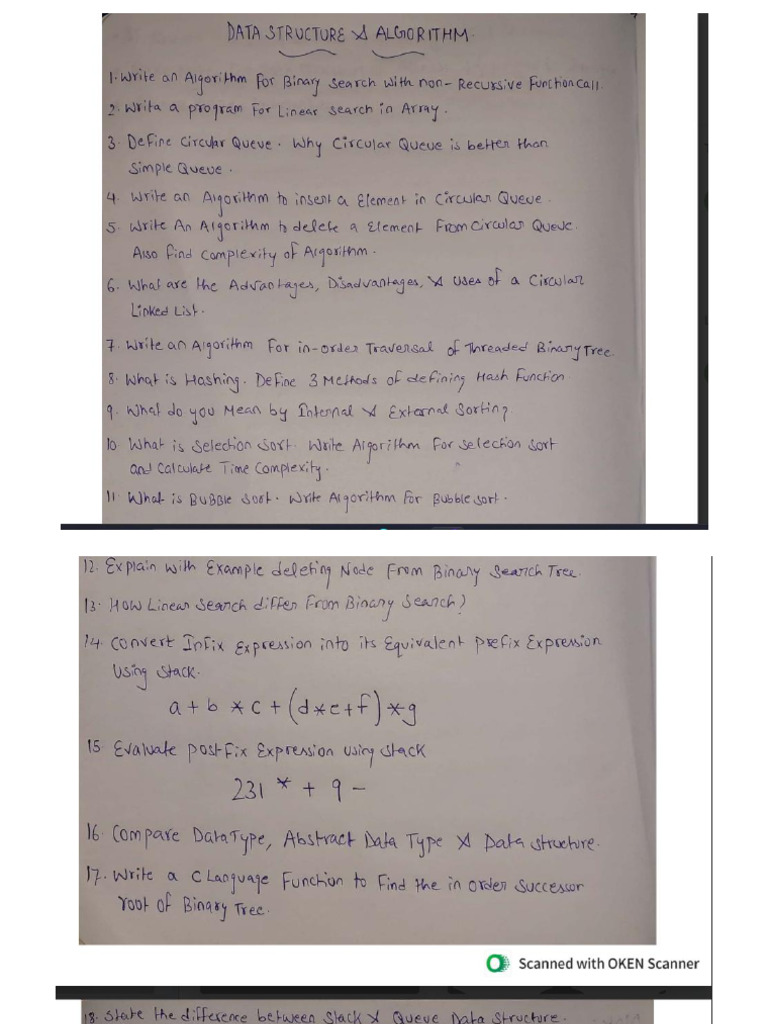 DATA STRUCTURE & ALGORITHM
1. Write an Algorithm For Binary Search with non-Recursive Function call.
2. Write a program For Linear Search in Array.
3. Define Circular Queue. Why Circular Queue is better than
Simple Queue.
4. Write an Algorithm to insert a Element in Circular Queue.
5. Write An Algorithm to delete a Element From Circular Queue.
Also find complexity of Algorithm.
6. What are the Advantages, Disadvantages, & Uses of a Circular
Linked List.
7. Write an Algorithm For in-order Traversal of Threaded Binary Tree.
8. What is Hashing. Define 3 Methods of defining Hash Function
9. What do you Mean by Internal & External Sorting?
10. What is Selection sort. Write Algorithm For selection sort
and calculate Time Complexity.
11. What is Bubble Sort. Write Algorithm For Bubble sort.
12. Explain with Example deleting Node From Binary Search Tree.
13. How Linear Search differ From Binary Search?
14. Convert Infix Expression into its Equivalent Prefix Expression
Using Stack.
a + b * c + (d * e + f) * g
15. Evaluate Postfix Expression using Stack
231 * + 9 -
16. Compare DataType, Abstract Data Type & Data Structure.
17. Write a C Language Function to Find the in order Successor
root of Binary Tree.
Scanned with OKEN Scanner
18. State the difference between Stack & Queue Data Structure.